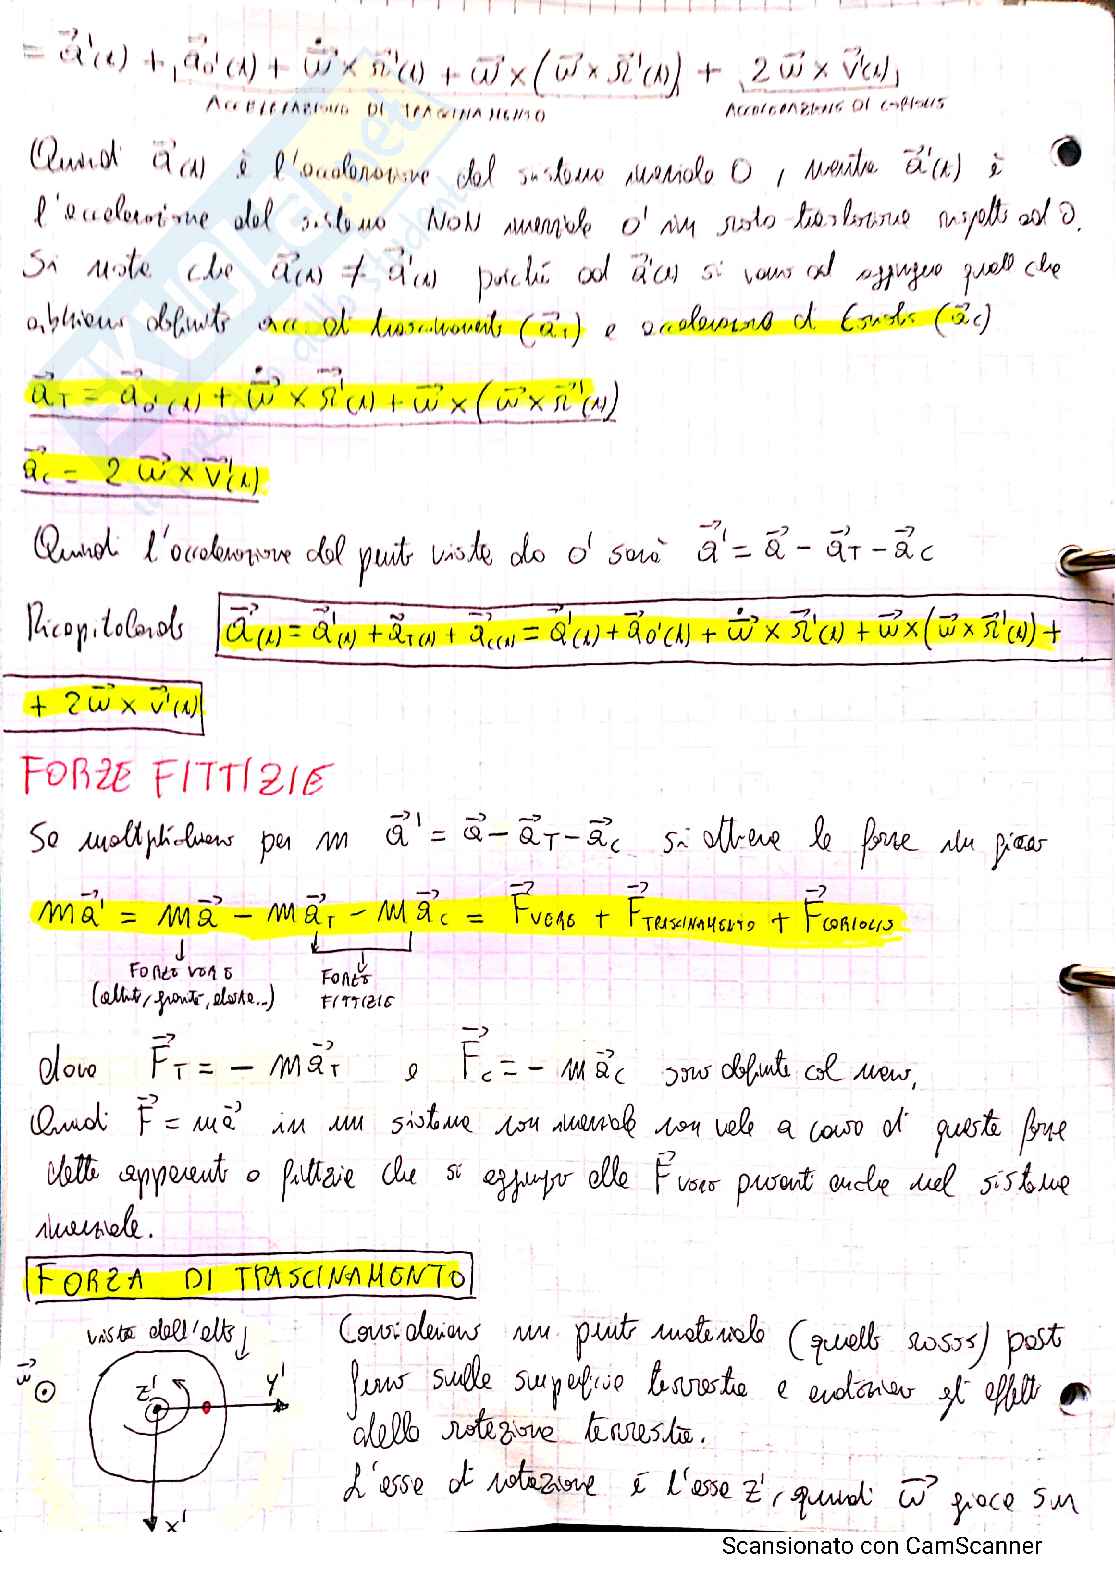 = a⃗'(t) + a⃗o'(t) + ω⃗̇ × r⃗'(t) + ω⃗ × (ω⃗ × r⃗'(t)) + 2ω⃗ × v⃗'(t)
ACCELERAZIONE DI TRASCINAMENTO ACCELERAZIONE DI CORIOLIS
Quindi a⃗(t) è l'accelerazione del sistema inerziale O, mentre a⃗'(t) è
l'accelerazione del sistema NON inerziale O' in roto-traslazione rispetto ad O.
Si nota che a⃗(t) ≠ a⃗'(t) poiché ad a⃗'(t) si vanno ad aggiungere quelle che
abbiamo definito acc. di trascinamento (a⃗T) e accelerazione di Coriolis (a⃗c)
a⃗T = a⃗o'(t) + ω⃗̇ × r⃗'(t) + ω⃗ × (ω⃗ × r⃗'(t))
a⃗c = 2 ω⃗ × v⃗'(t)
Quindi l'accelerazione del punto vista da O' sarà a⃗' = a⃗ - a⃗T - a⃗C
Ricapitolando a⃗(t) = a⃗'(t) + a⃗T(t) + a⃗c(t) = a⃗'(t) + a⃗o'(t) + ω⃗̇ × r⃗'(t) + ω⃗ × (ω⃗ × r⃗'(t)) +
+ 2ω⃗ × v⃗'(t)
FORZE FITTIZIE
Se moltiplichiamo per m a⃗' = a⃗ - a⃗T - a⃗C si ottiene le forze in gioco
ma⃗' = ma⃗ - ma⃗T - ma⃗C = F⃗VERA + F⃗TRASCINAMENTO + F⃗CORIOLIS
FORZE VERE
(attrito, gravità, elastica...)
FORZE
FITTIZIE
dove F⃗T = - ma⃗T e F⃗C = - ma⃗C sono definite col meno,
Quindi F⃗ = ma⃗ in un sistema non inerziale non vale a causa di queste forze
dette apparenti o fittizie che si aggiungono alle F⃗VERE presenti anche nel sistema
inerziale.
FORZA DI TRASCINAMENTO
vista dall'alto
ω⃗
z'
y'
x'
Consideriamo un punto materiale (quello rosso) posto
fermo sulla superficie terrestre e evidenziamo gli effetti
della rotazione terrestre.
L'asse di rotazione è l'asse z', quindi ω⃗ giace su
Scansionato con CamScanner